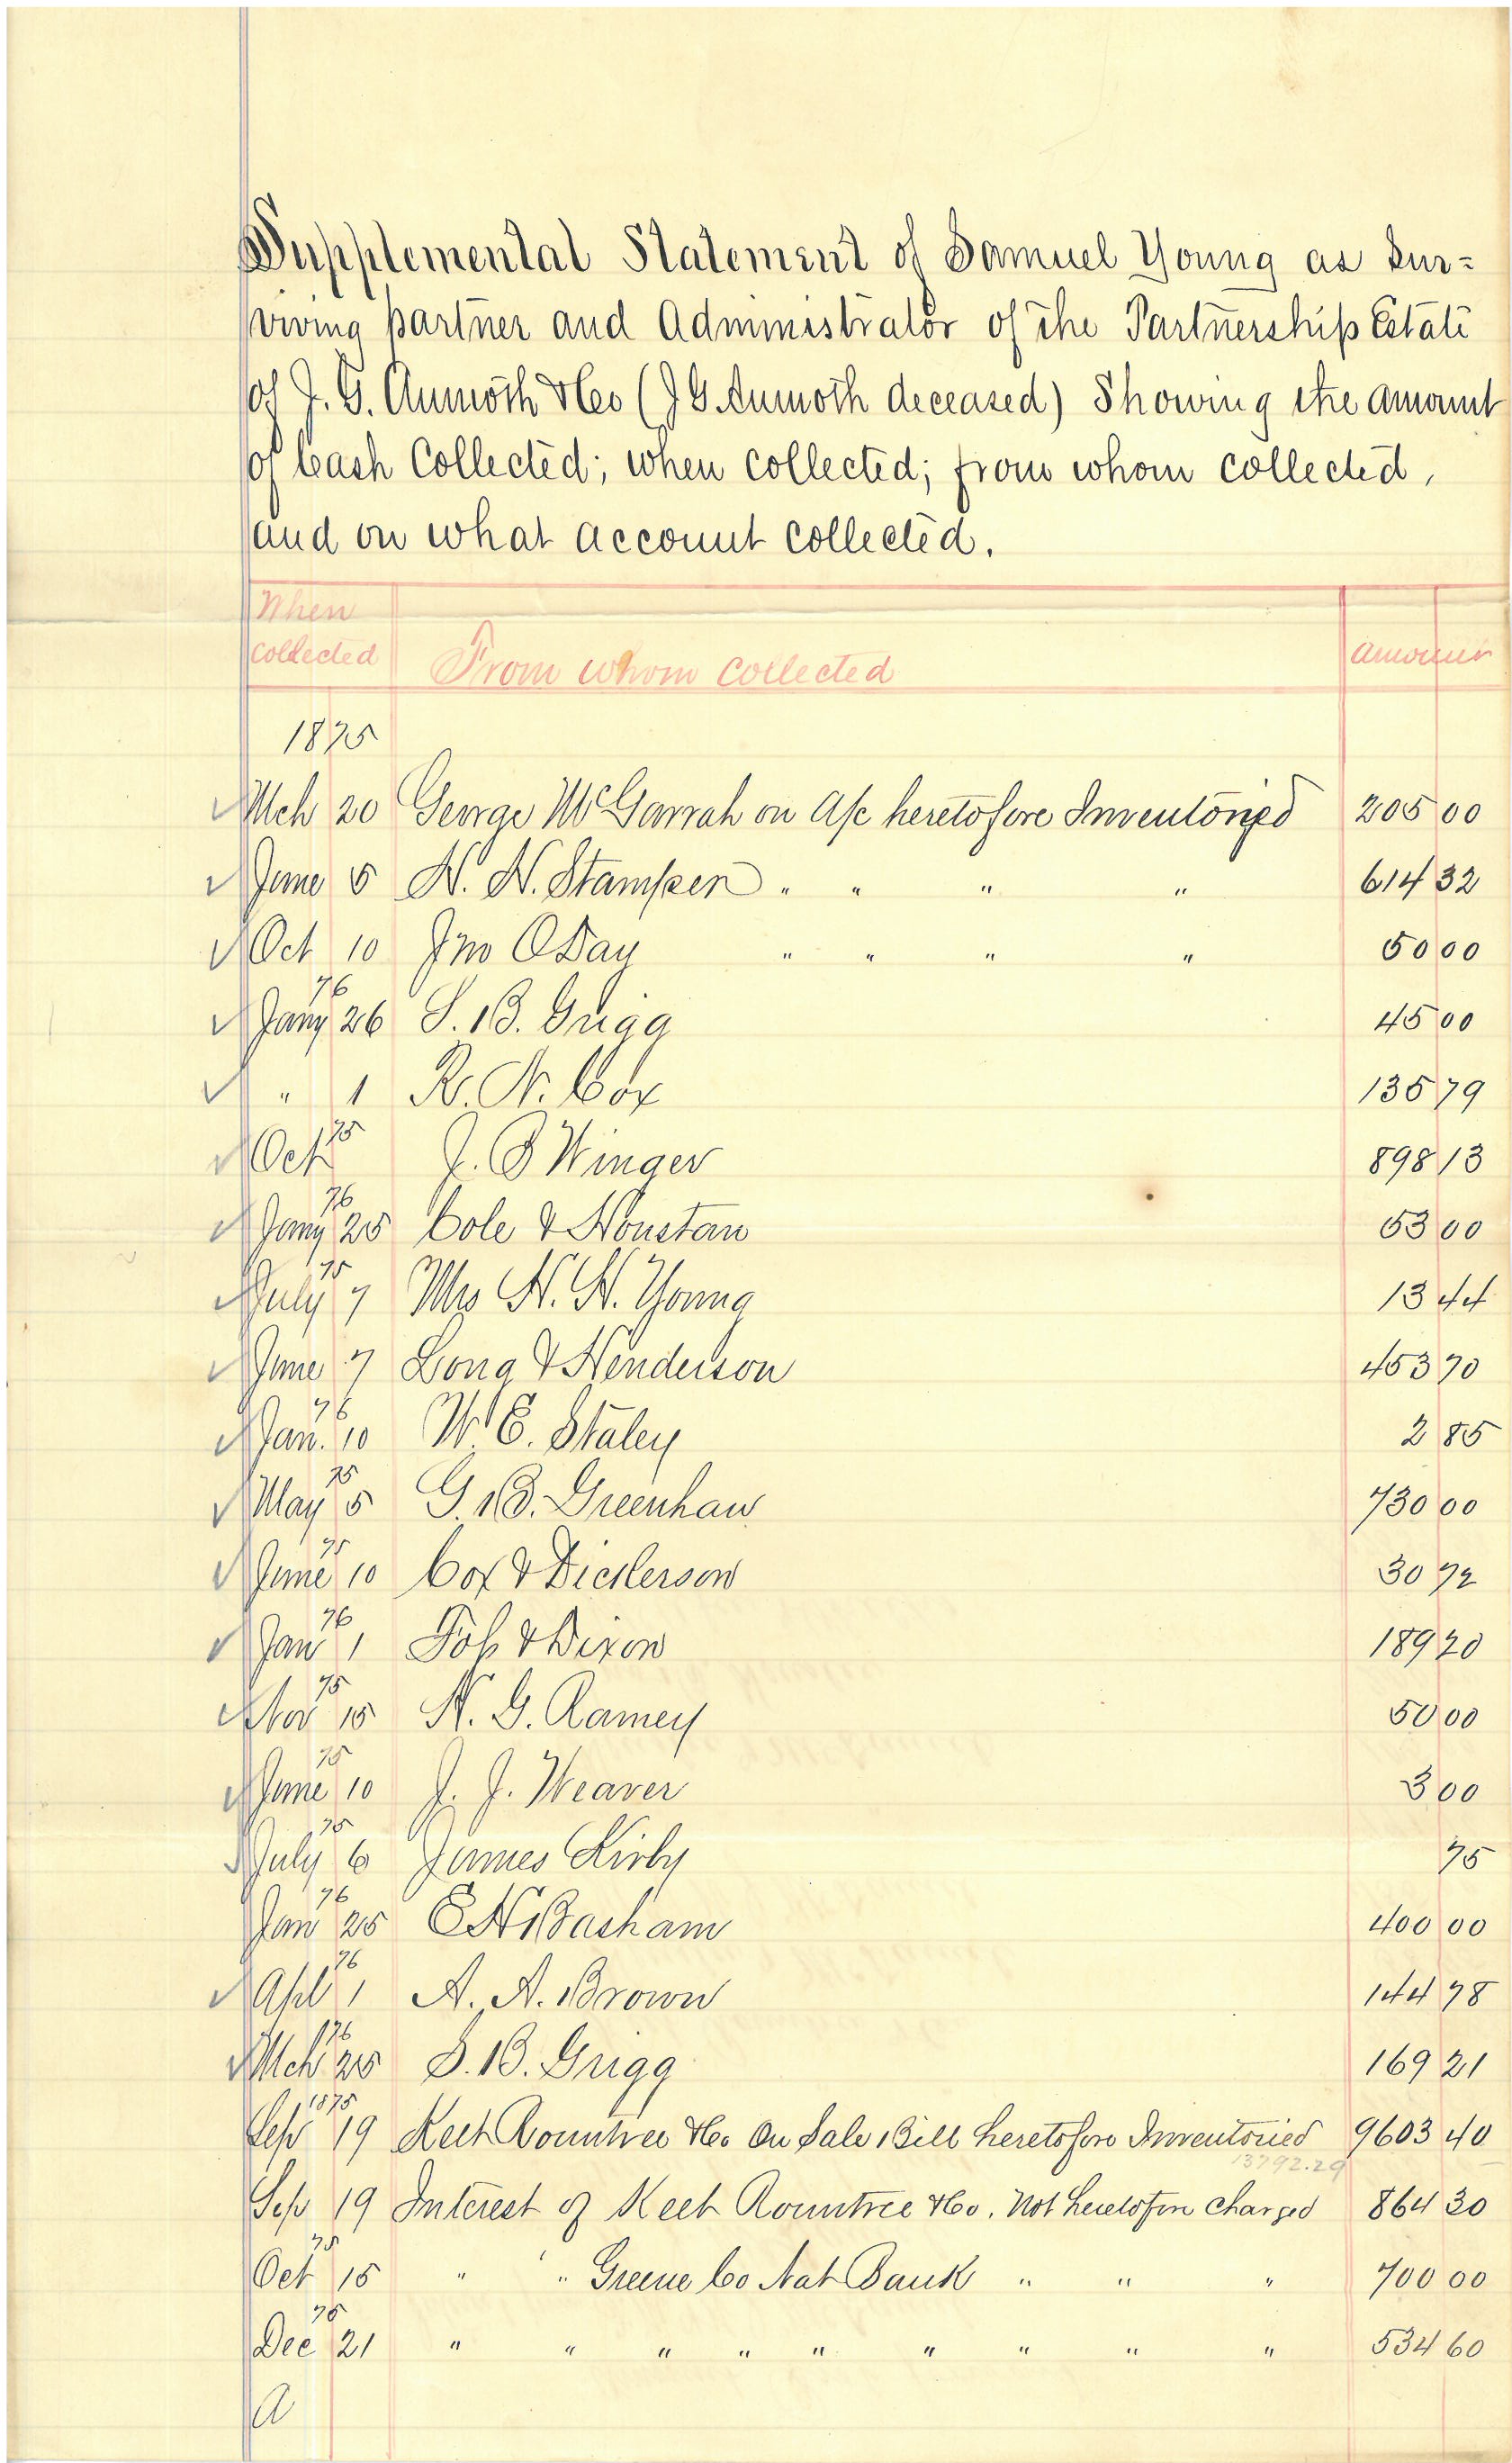 Supplemental Statement of Samuel Young as Sur=
viving partner and Administrator of the Partnership Estate
of J. G. Aumoth & Co (J G Aumoth deceased) Showing the amount
of Cash Collected; when collected; from whom collected,
and on what account collected.
When
collected From whom collected amount
1875
Mch 20 George McGarrah on A/c heretofore Inventoried 205 00
June 5 N. N. Stamper " " " " 614 32
Oct 10 Jno ODay " " " " 50 00
76
Jany 26 S. B. Grigg 45 00
" 1 R. N. Cox 135 79
75
Oct J. B Winger 898 13
76
Jany 25 Cole & Houstan 53 00
75
July 7 Mrs N. N. Young 13 44
June 7 Long & Henderson 453 70
76
Jan. 10 W. E. Staley 2 85
75
May 5 G. B. Greenhaw 730 00
75
June 10 Cox & Dickerson 30 72
76
Jan 1 Fob & Dixon 189 20
75
Nov 15 N. G. Ramey 50 00
75
June 10 J. J. Weaver 3 00
75
July 6 James Kirby 75
76
Jan 25 E N Basham 400 00
76
Apl 1 A. A. Brown 144 78
76
Mch 25 S. B. Grigg 169 21
1875
Sep 19 Keet Rountree & Co On Sale Bill heretofore Inventoried 9603 40
13792.29
Sep 19 Interest of Keet Rountree & Co. Not heretofore charged 864 30
75
Oct 15 " " Greene Co Nat Bank " " " 700 00
75
Dec 21 " " " " " " " " " 534 60
a